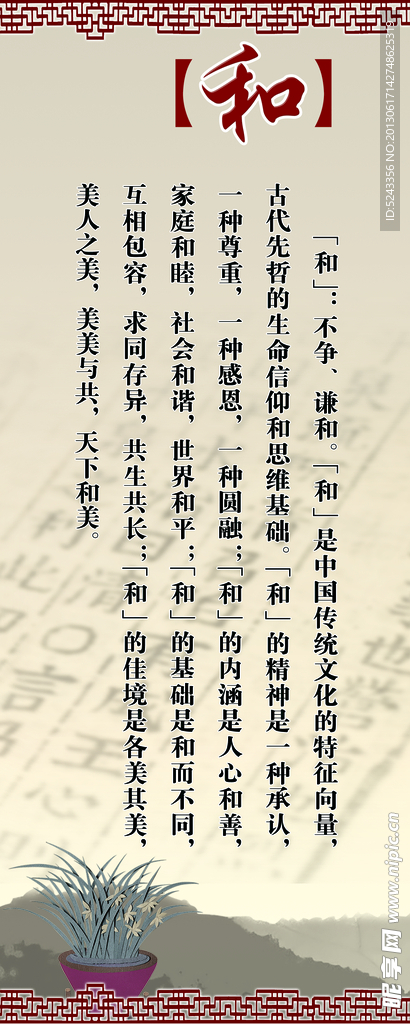 【和】
「和」：不争、谦和。「和」是中国传统文化的特征向量，
古代先哲的生命信仰和思维基础。「和」的精神是一种承认，
一种尊重，一种感恩，一种圆融；「和」的内涵是人心和善，
家庭和睦，社会和谐，世界和平；「和」的基础是和而不同，
互相包容，求同存异，共生共长；「和」的佳境是各美其美，
美人之美，美美与共，天下和美。
ID:5243356 NO:20130617142748625318
昵享网 www.nipic.cn